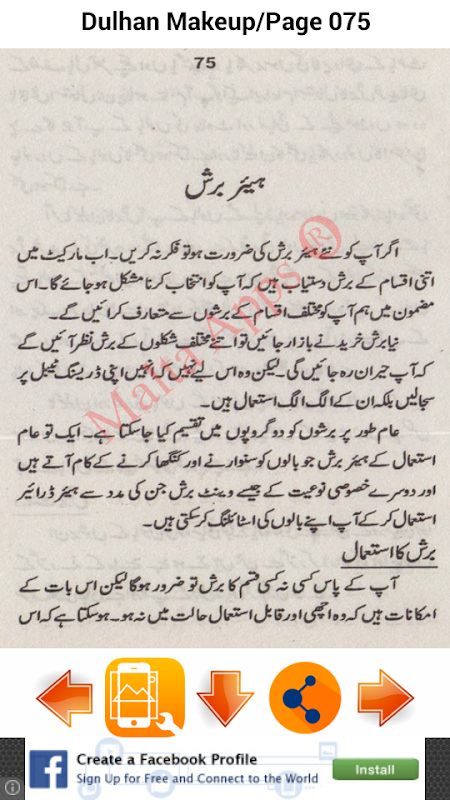 Dulhan Makeup/Page 075
75
ہیئر برش
اگر آپ کو نئے ہیئر برش کی ضرورت ہو تو فکر نہ کریں۔ اب مارکیٹ میں
اتنی اقسام کے برش دستیاب ہیں کہ آپ کو انتخاب کرنا مشکل ہو جائے گا۔ اس
مضمون میں ہم آپ کو مختلف اقسام کے برشوں سے متعارف کرائیں گے۔
نیا برش خریدنے بازار جائیں تو اتنے مختلف شکلوں کے برش نظر آئیں گے
کہ آپ حیران رہ جائیں گی۔ لیکن وہ اس لیے نہیں کہ انہیں اپنی ڈریسنگ ٹیبل پر
سجالیں بلکہ ان کے الگ الگ استعمال ہیں۔
عام طور پر برشوں کو دو گروپوں میں تقسیم کیا جا سکتا ہے۔ ایک تو عام
استعمال کے ہیئر برش جو بالوں کو سنوارنے اور کنگھا کرنے کے کام آتے ہیں
اور دوسرے خصوصی نوعیت کے جیسے وینٹ برش جن کی مدد سے ہیئر ڈرائیر
استعمال کر کے آپ اپنے بالوں کی اسٹائلنگ کر سکتی ہیں۔
برش کا استعمال
آپ کے پاس کسی نہ کسی قسم کا برش تو ضرور ہو گا لیکن اس بات کے
امکانات ہیں کہ وہ اچھی اور قابل استعمال حالت میں نہ ہو۔ ہو سکتا ہے کہ اس
Maita Apps ®
Create a Facebook Profile
Sign Up for Free and Connect to the World
Install